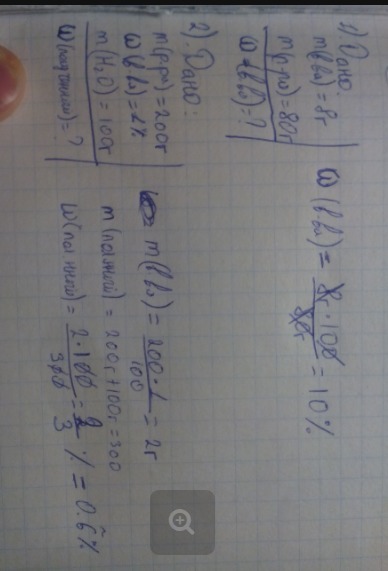 1) Дано:
m(в-ва) = 8г
m(р-ра) = 80г
ω(в-ва) = ?
ω(в-ва) = 8г · 100 / 80г = 10%
2). Дано:
m(р-ра) = 200г
ω(в-ва) = 1%
m(H₂O) = 100г
ω( ) = ?
m(в-ва) = 200 · 1 / 100 = 2г
m( ) = 200г + 100г = 300
ω( ) = 2 · 100 / 300 = 2 / 3 % = 0.6%